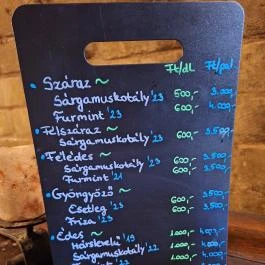 Ft/dl Ft/pal
• Száraz ~
Sárgamuskotály '23 500,- 3.000,-
Furmint '23 600,- 4.000,-
• Félszáraz ~
Sárgamuskotály '23 600,- 3.500,-
• Félédes ~
Sárgamuskotály '23 600,- 3.500,-
Furmint '21 600,- 3.500,-
• Gyöngyöző ~
Esetleg '23 600,- 3.500,-
Friza '23 600,- 3.500,-
• Édes ~
Hárslevelű '19 1.000,-
Sárgamuskotály '22 1.000,- 4.000,-
Furmint '23 1.000,-